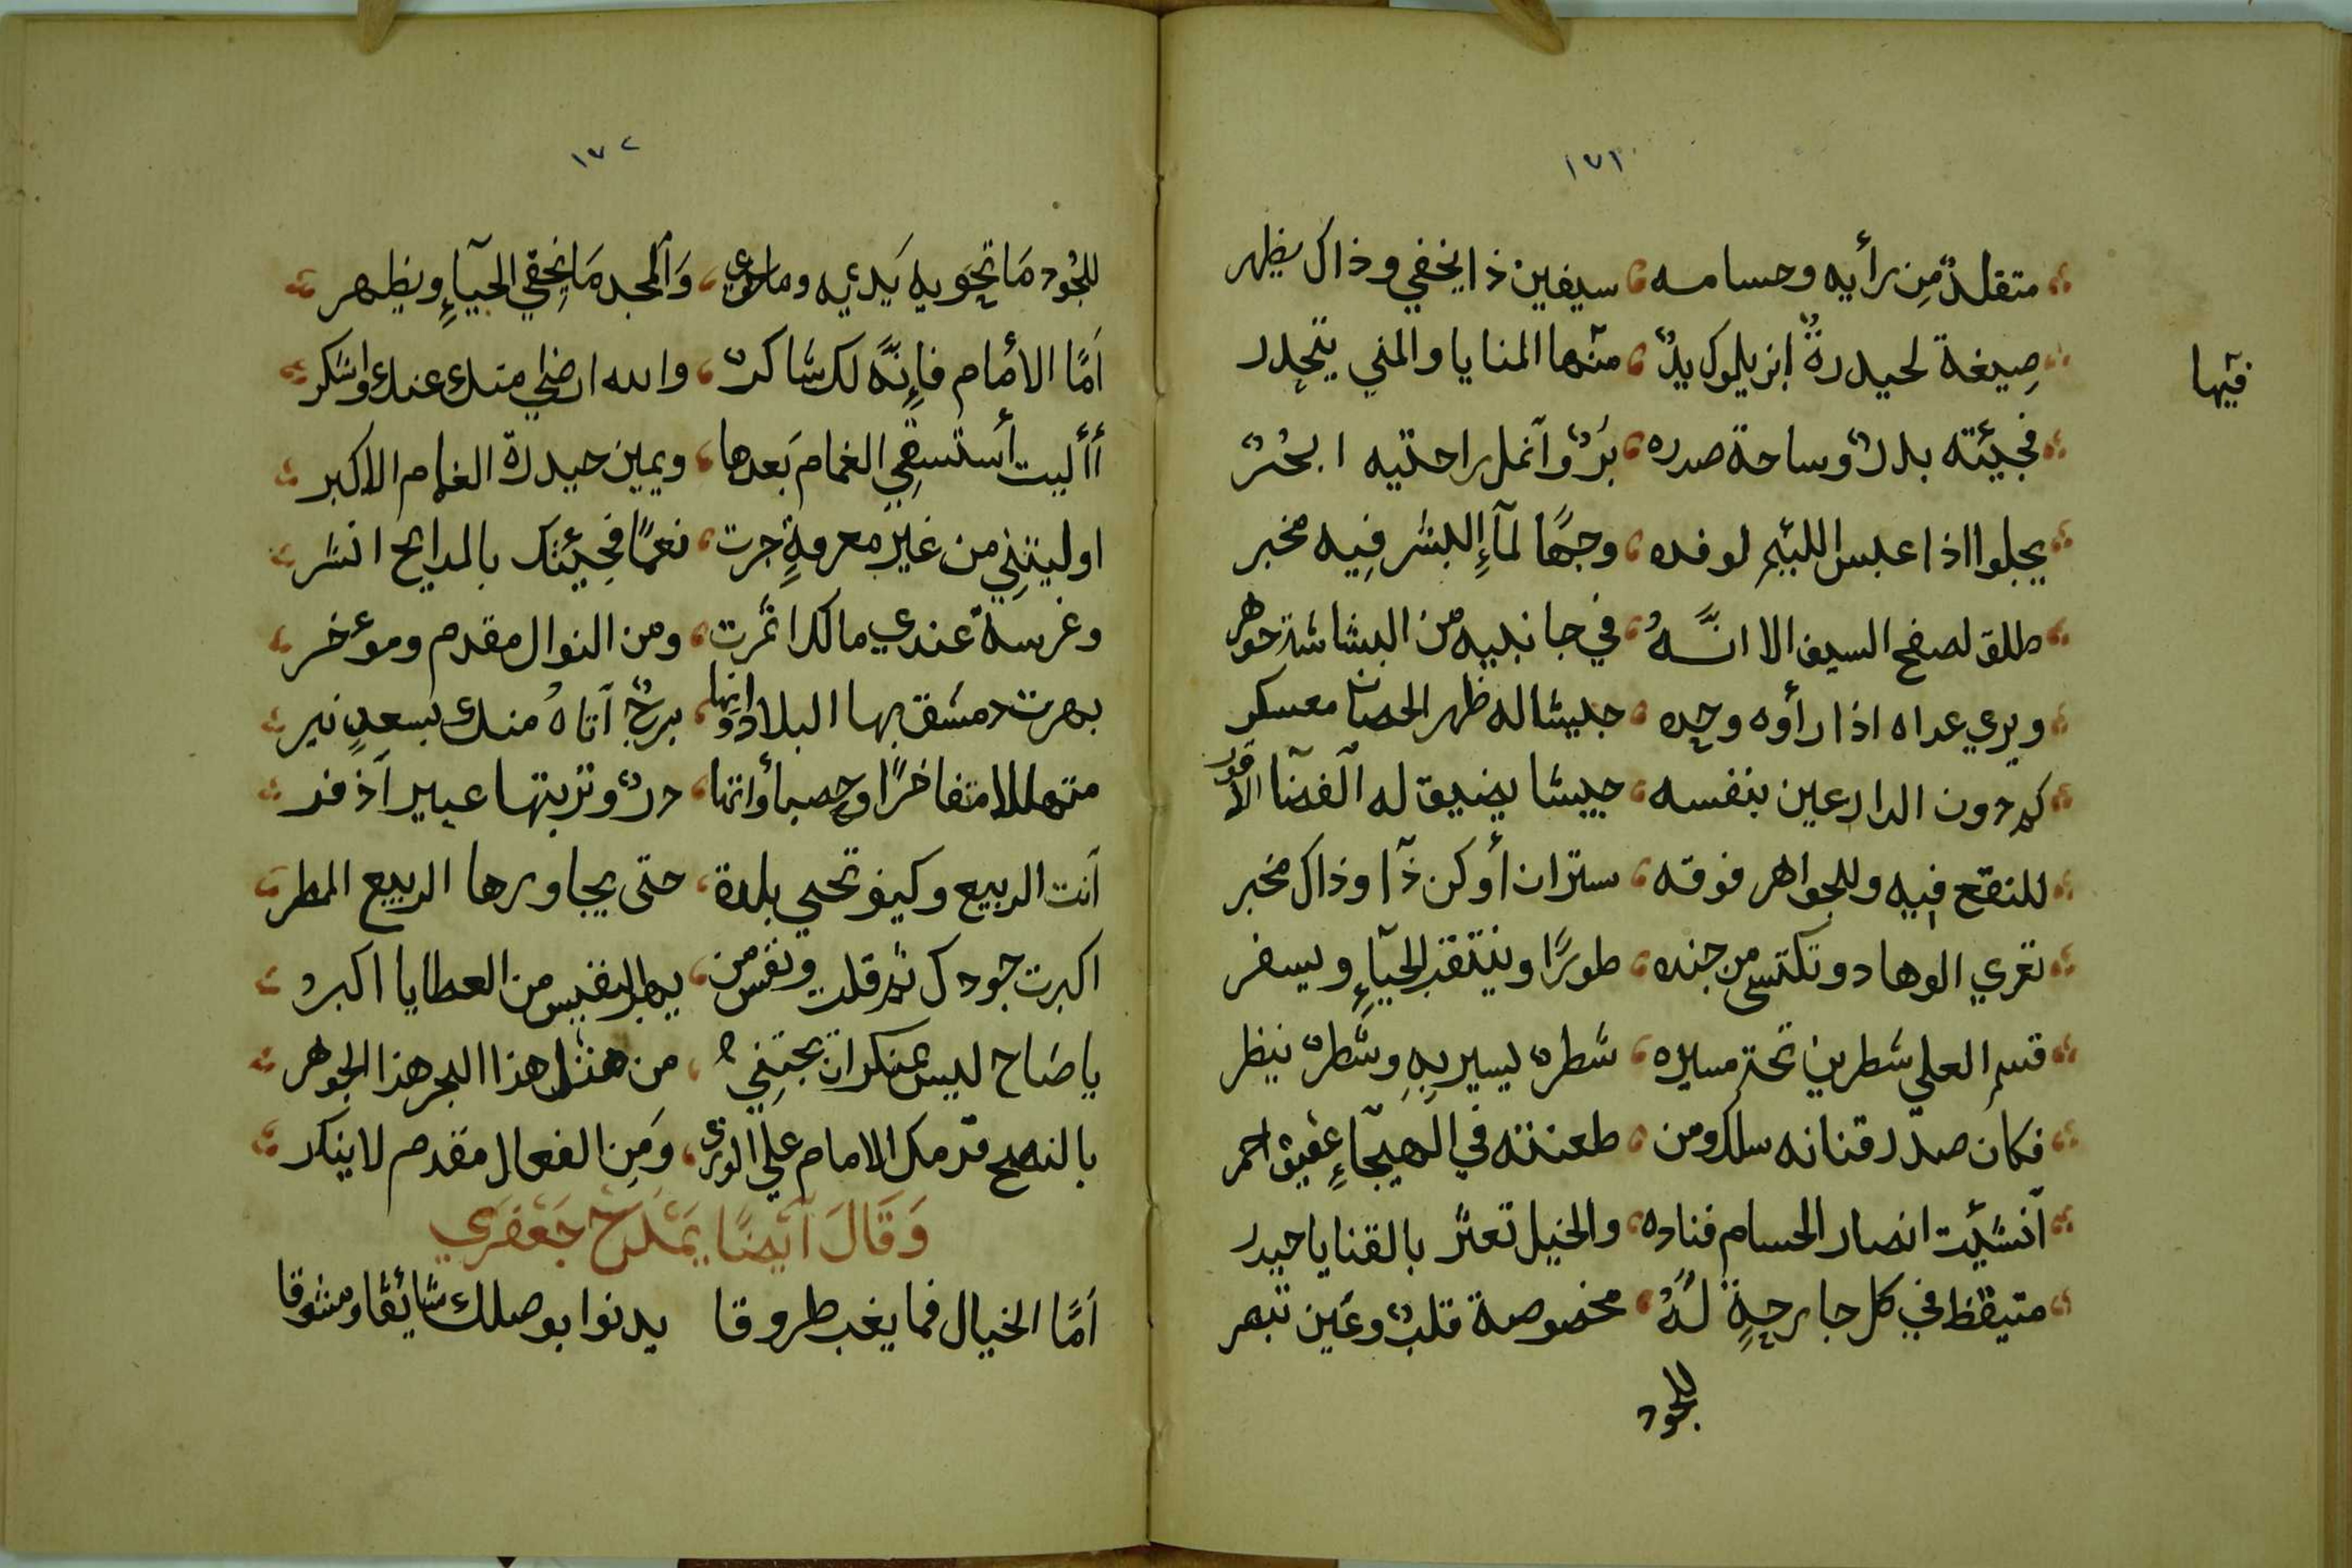 ١٧١
متقلدٌ مِن رأيه وحسامه سيفين ذا يخفي وذاك يظهر
صِيغة لحيدرةٌ يدٌ منها المنايا والمني يتحدر
فيها
فجيئته بدرٌ وساحة صدره بَرٌ وآنمل راحتيه ابحُرٌ
يجلوا اذا عبس اللئيم لوفده وجهًا لمآءِ البشر فِيه مخبر
طلق لصفح السيف الا انَّهُ في جانبيه من البشاشة جوهر
ويري عداه اذا رأوه وحده جيشا له ظهر الحصان معسكر
كم دون الدارعين بنفسه جيشا يضيق له الفضآ الاقور
للنقع فيه وللجواهر فوقه ستران أوكن ذآ وذاك مخبر
تعري الوهاد وتكتسي من جنده طورًا وينتقب الحيآءِ ويسفر
قسم العلي شطرين تحت مسيره شطرٌ يسير بِهِ وشطرٌ ينظر
فكان صدر قناته سلك ومن طعنته في الهيجآءِ عقيق احمر
آنشئت انصار الحسام فناده والخيل تعثر بالقنا يا حيدر
متيقظ في كل جارحةٍ لَهُ مخصوصة قلبٌ وعَين تبصر
للجود
١٧٢
للجُود مَا تحَويه يَديه وما حوي وَالمجد مَا يُخفي الحيآءِ ويظهر
اَمَّا الاَمام فإِنَّهُ لك شاكرٌ والله ارضي منك عنك واشكر
أأليت أستسقِي الغمام بَعدها ويمين حيدرة الغمام الاكبر
اوليتنِي من غير معرفةٍ جرت نعمًا فجيئتك بالمدايح انشر
وغرسة عندي مالكدا ثمرت ومن النوال مقدم وموءخر
بهرت دمشق بها البلاد وانها برجٌ آتاهُ منك بسعدٍ نير
متهللا متفاخرًا وحصبأوانها درٌ وتربتها عبير آذفر
آنت الربيع وكيف تحي بلدة حتى يجاورها الربيع المطر
اكبرت جودك ثم قلت ونفس من يهب النفيس من العطايا اكبر
ياصَاح ليس عنكران يجتنِي من مثل هذا البحر هذا الجوهر
بالنصح قدمك الامام علي الوري وَمِن الفعال مقدم لاينكر
وَقَالَ آيضًا يَمْدَحْ جَعْفَرِي
اَمَّا الخيال فما يغب طروقا يدنوا بوصلك شائقا ومشوقا